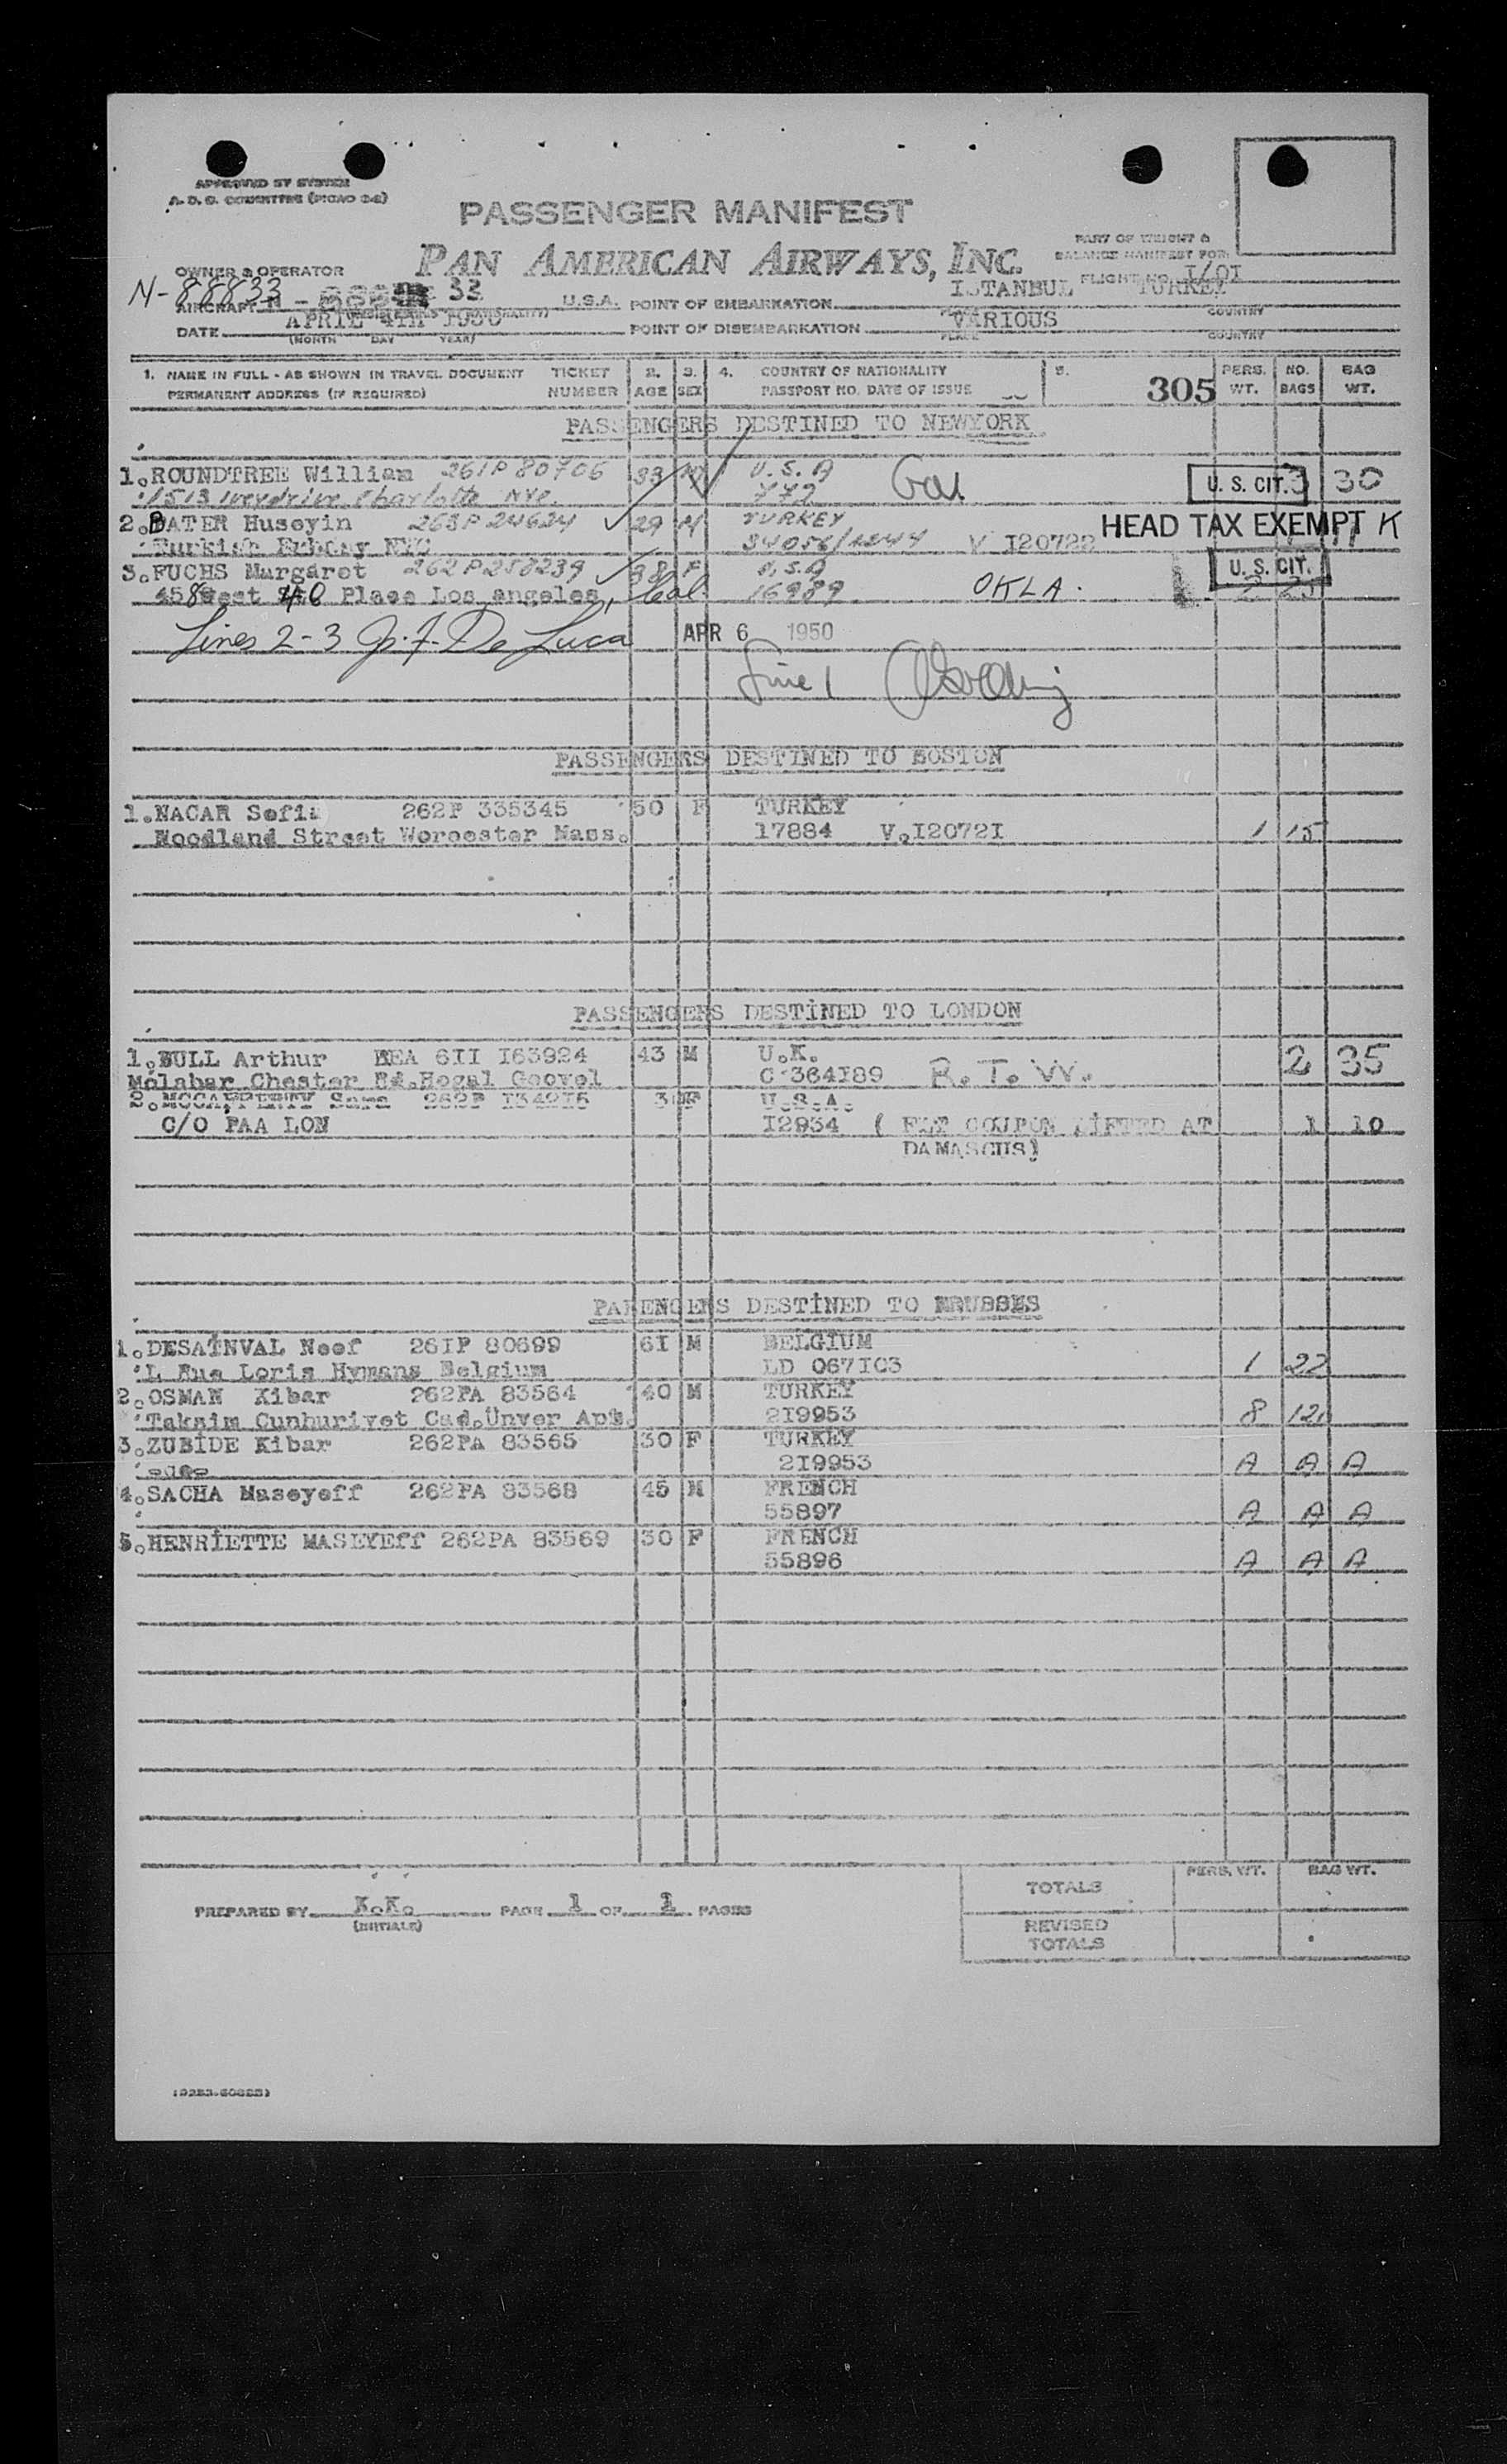 APPROVED BY SYSTEM
A. D. S. COMMITTEE
PASSENGER MANIFEST
PAN AMERICAN AIRWAYS, INC.
PART OF WEIGHT &
BALANCE MANIFEST FOR:
FLIGHT NO. I/OI
OWNER & OPERATOR
N-88833
AIRCRAFT N - 33 U.S.A. POINT OF EMBARKATION ISTANBUL TURKEY
DATE APRIL 4TH 1950 POINT OF DISEMBARKATION VARIOUS
(MONTH DAY YEAR) PLACE COUNTRY
1. NAME IN FULL - AS SHOWN IN TRAVEL DOCUMENT TICKET 2. 3. 4. COUNTRY OF NATIONALITY 5. PERS. NO. BAG
PERMANENT ADDRESS (IF REQUIRED) NUMBER AGE SEX PASSPORT NO. DATE OF ISSUE 305 WT. BAGS WT.
PASSENGERS DESTINED TO NEWYORK
1.ROUNDTREE William 261P 80706 33 M U.S.A U. S. CIT. 3 30
1513 Charlotte 772
2.BATER Huseyin 263P 24624 29 M TURKEY HEAD TAX EXEMPT K
Turkish NYC V I20722
3.FUCHS Margaret 262P 38 F U.S.A U. S. CIT.
458 West Place Los angeles, Cal. 16989 OKLA.
Lines 2-3 J. F. De Luca APR 6 1950
Line 1
PASSENGERS DESTINED TO BOSTON
1.NACAR Sofia 262P 335345 50 F TURKEY
Woodland Street Worcester Mass. 17884 V.I2072I 1 15
PASSENGERS DESTİNED TO LONDON
1.BULL Arthur BEA 6II I63924 43 M U.K. 2 35
Malabar Chester Rd. C 364I89 R.T.W.
2. Sara 262P I342I5 F U.S.A.
C/O PAA LON I2934 ( COUPON LİFTED AT 1 10
DAMASCUS)
PAEENGERS DESTİNED TO
1.DESAİNVAL Neef 26IP 80699 6I M BELGİUM
L Rue Loris Hymans Belgium LD 067I03 1 22
2.OSMAN Kibar 262PA 83564 40 M TURKEY
Taksim Cunhuriyet Cad.Ünver Apt. 2I9953 8
3.ZUBİDE Kibar 262PA 83565 30 F TURKEY
2I9953 A A A
4.SACHA Maseyeff 262PA 83568 45 M FRENCH
55897 A A A
5.HENRİETTE MASEYEff 262PA 83569 30 F FRENCH
55896 A A A
PERS. WT. BAG WT.
TOTALS
PREPARED BY K.K. PAGE 1 OF 1 PAGES
(INITIALS)
REVISED
TOTALS